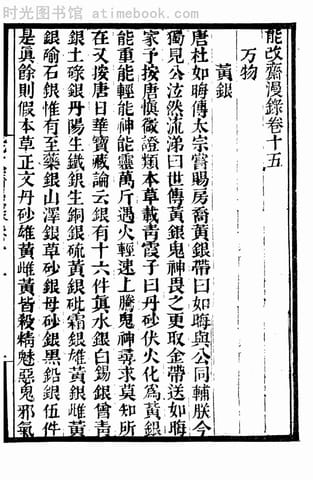 时光图书馆 atimebook.com
能改齋漫錄卷十五
万物
黃銀
唐杜如晦傳太宗嘗賜房喬黃銀帶曰如晦與公同輔朕今
獨見公泫然流涕曰世傳黃銀鬼神畏之更取金帶送如晦
家予按唐愼微證類本草載靑霞子曰丹砂伏火化爲黃銀
能重能輕能神能靈萬斤遇火輕速上騰鬼神尋求莫知所
在又按唐日華寶藏論云銀有十六件眞水銀白錫銀曾靑
銀土碌銀丹陽生鐵銀生銅銀硫黃銀砒霜銀雄黃銀雌黃
銀鍮石銀惟有至藥銀山澤銀草砂銀母砂銀黑鉛銀伍件
是眞餘則假本草正文丹砂雄黃雌黃皆殺精魅惡鬼邪氣
时光图书馆 atimebook.com